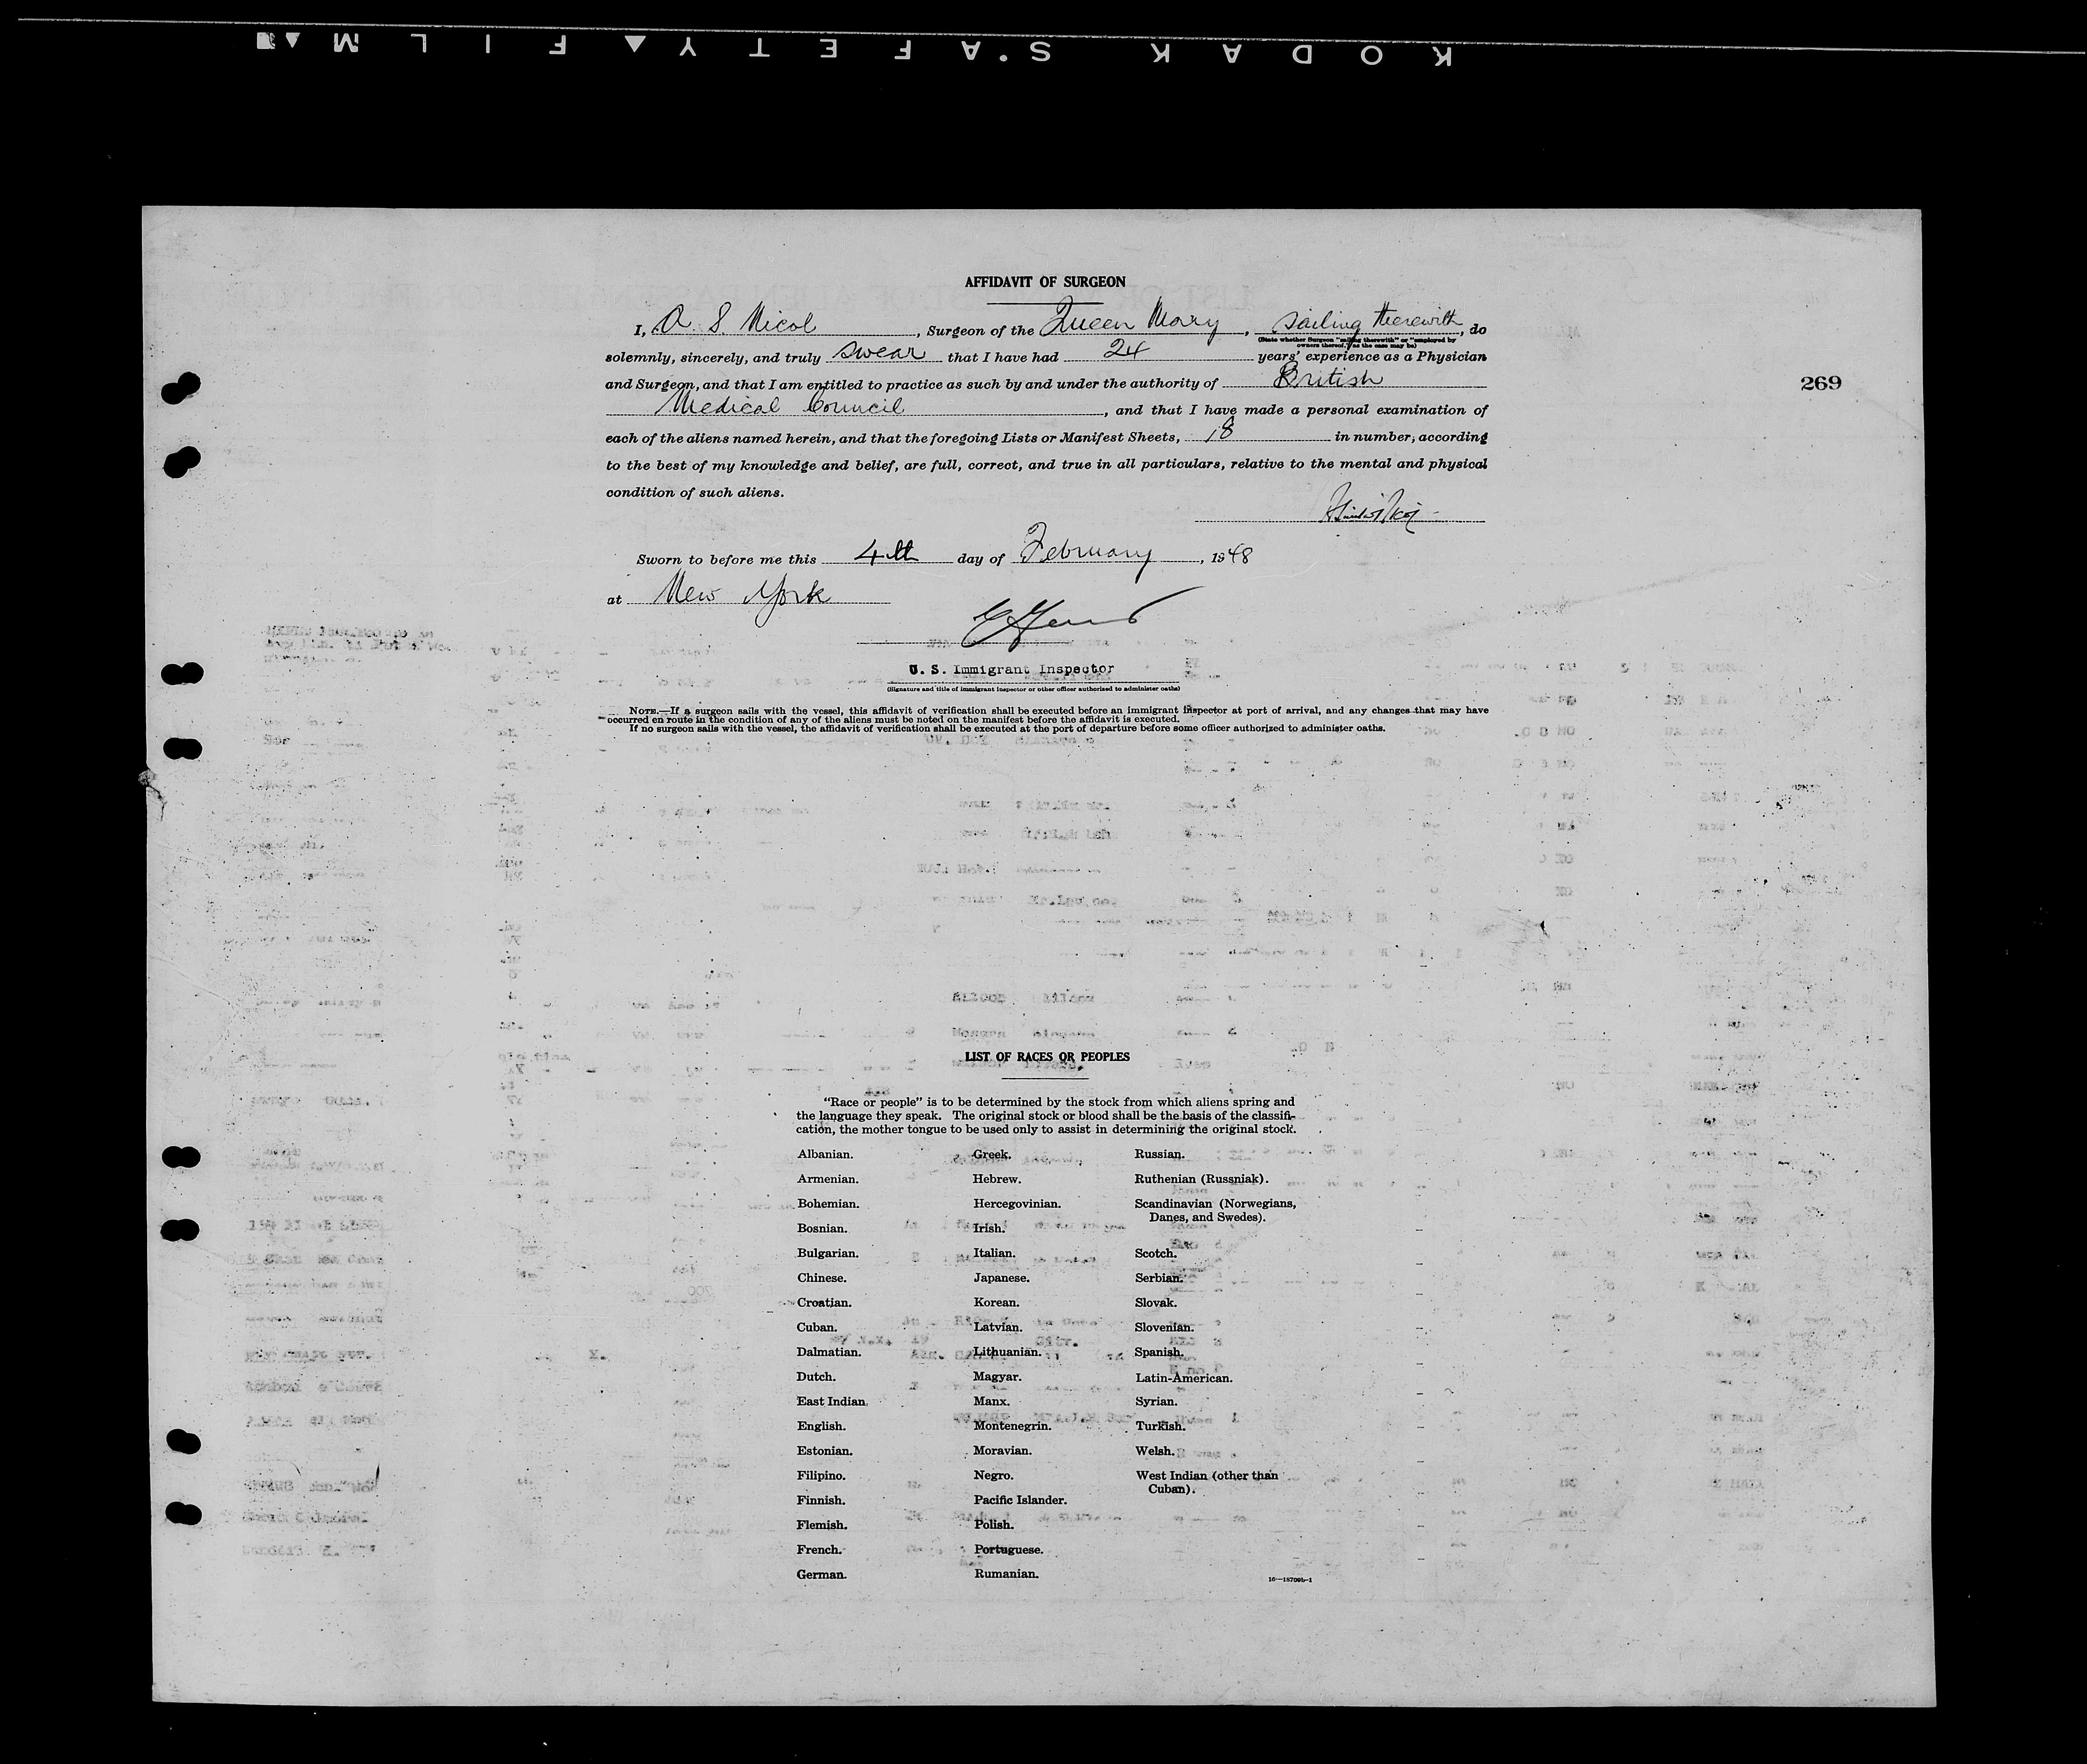 KODAK S'AFETY FILM
AFFIDAVIT OF SURGEON
I, A. S. Nicol, Surgeon of the Queen Mary, sailing therewith, do
(State whether Surgeon "sailing therewith" or "employed by
owners thereof," as the case may be)
solemnly, sincerely, and truly swear that I have had 24 years' experience as a Physician
and Surgeon, and that I am entitled to practice as such by and under the authority of British
269
Medical Council, and that I have made a personal examination of
each of the aliens named herein, and that the foregoing Lists or Manifest Sheets, 18 in number, according
to the best of my knowledge and belief, are full, correct, and true in all particulars, relative to the mental and physical
condition of such aliens.
Sworn to before me this 4th day of February, 1948
at New York
U. S. Immigrant Inspector
(Signature and title of immigrant inspector or other officer authorized to administer oaths)
NOTE.—If a surgeon sails with the vessel, this affidavit of verification shall be executed before an immigrant inspector at port of arrival, and any changes that may have
occurred en route in the condition of any of the aliens must be noted on the manifest before the affidavit is executed.
If no surgeon sails with the vessel, the affidavit of verification shall be executed at the port of departure before some officer authorized to administer oaths.
LIST OF RACES OR PEOPLES
"Race or people" is to be determined by the stock from which aliens spring and
the language they speak. The original stock or blood shall be the basis of the classifi-
cation, the mother tongue to be used only to assist in determining the original stock.
Albanian.
Armenian.
Bohemian.
Bosnian.
Bulgarian.
Chinese.
Croatian.
Cuban.
Dalmatian.
Dutch.
East Indian.
English.
Estonian.
Filipino.
Finnish.
Flemish.
French.
German.
Greek.
Hebrew.
Hercegovinian.
Irish.
Italian.
Japanese.
Korean.
Latvian.
Lithuanian.
Magyar.
Manx.
Montenegrin.
Moravian.
Negro.
Pacific Islander.
Polish.
Portuguese.
Rumanian.
Russian.
Ruthenian (Russniak).
Scandinavian (Norwegians,
Danes, and Swedes).
Scotch.
Serbian.
Slovak.
Slovenian.
Spanish.
Latin-American.
Syrian.
Turkish.
Welsh.
West Indian (other than
Cuban).
16—18709b-1